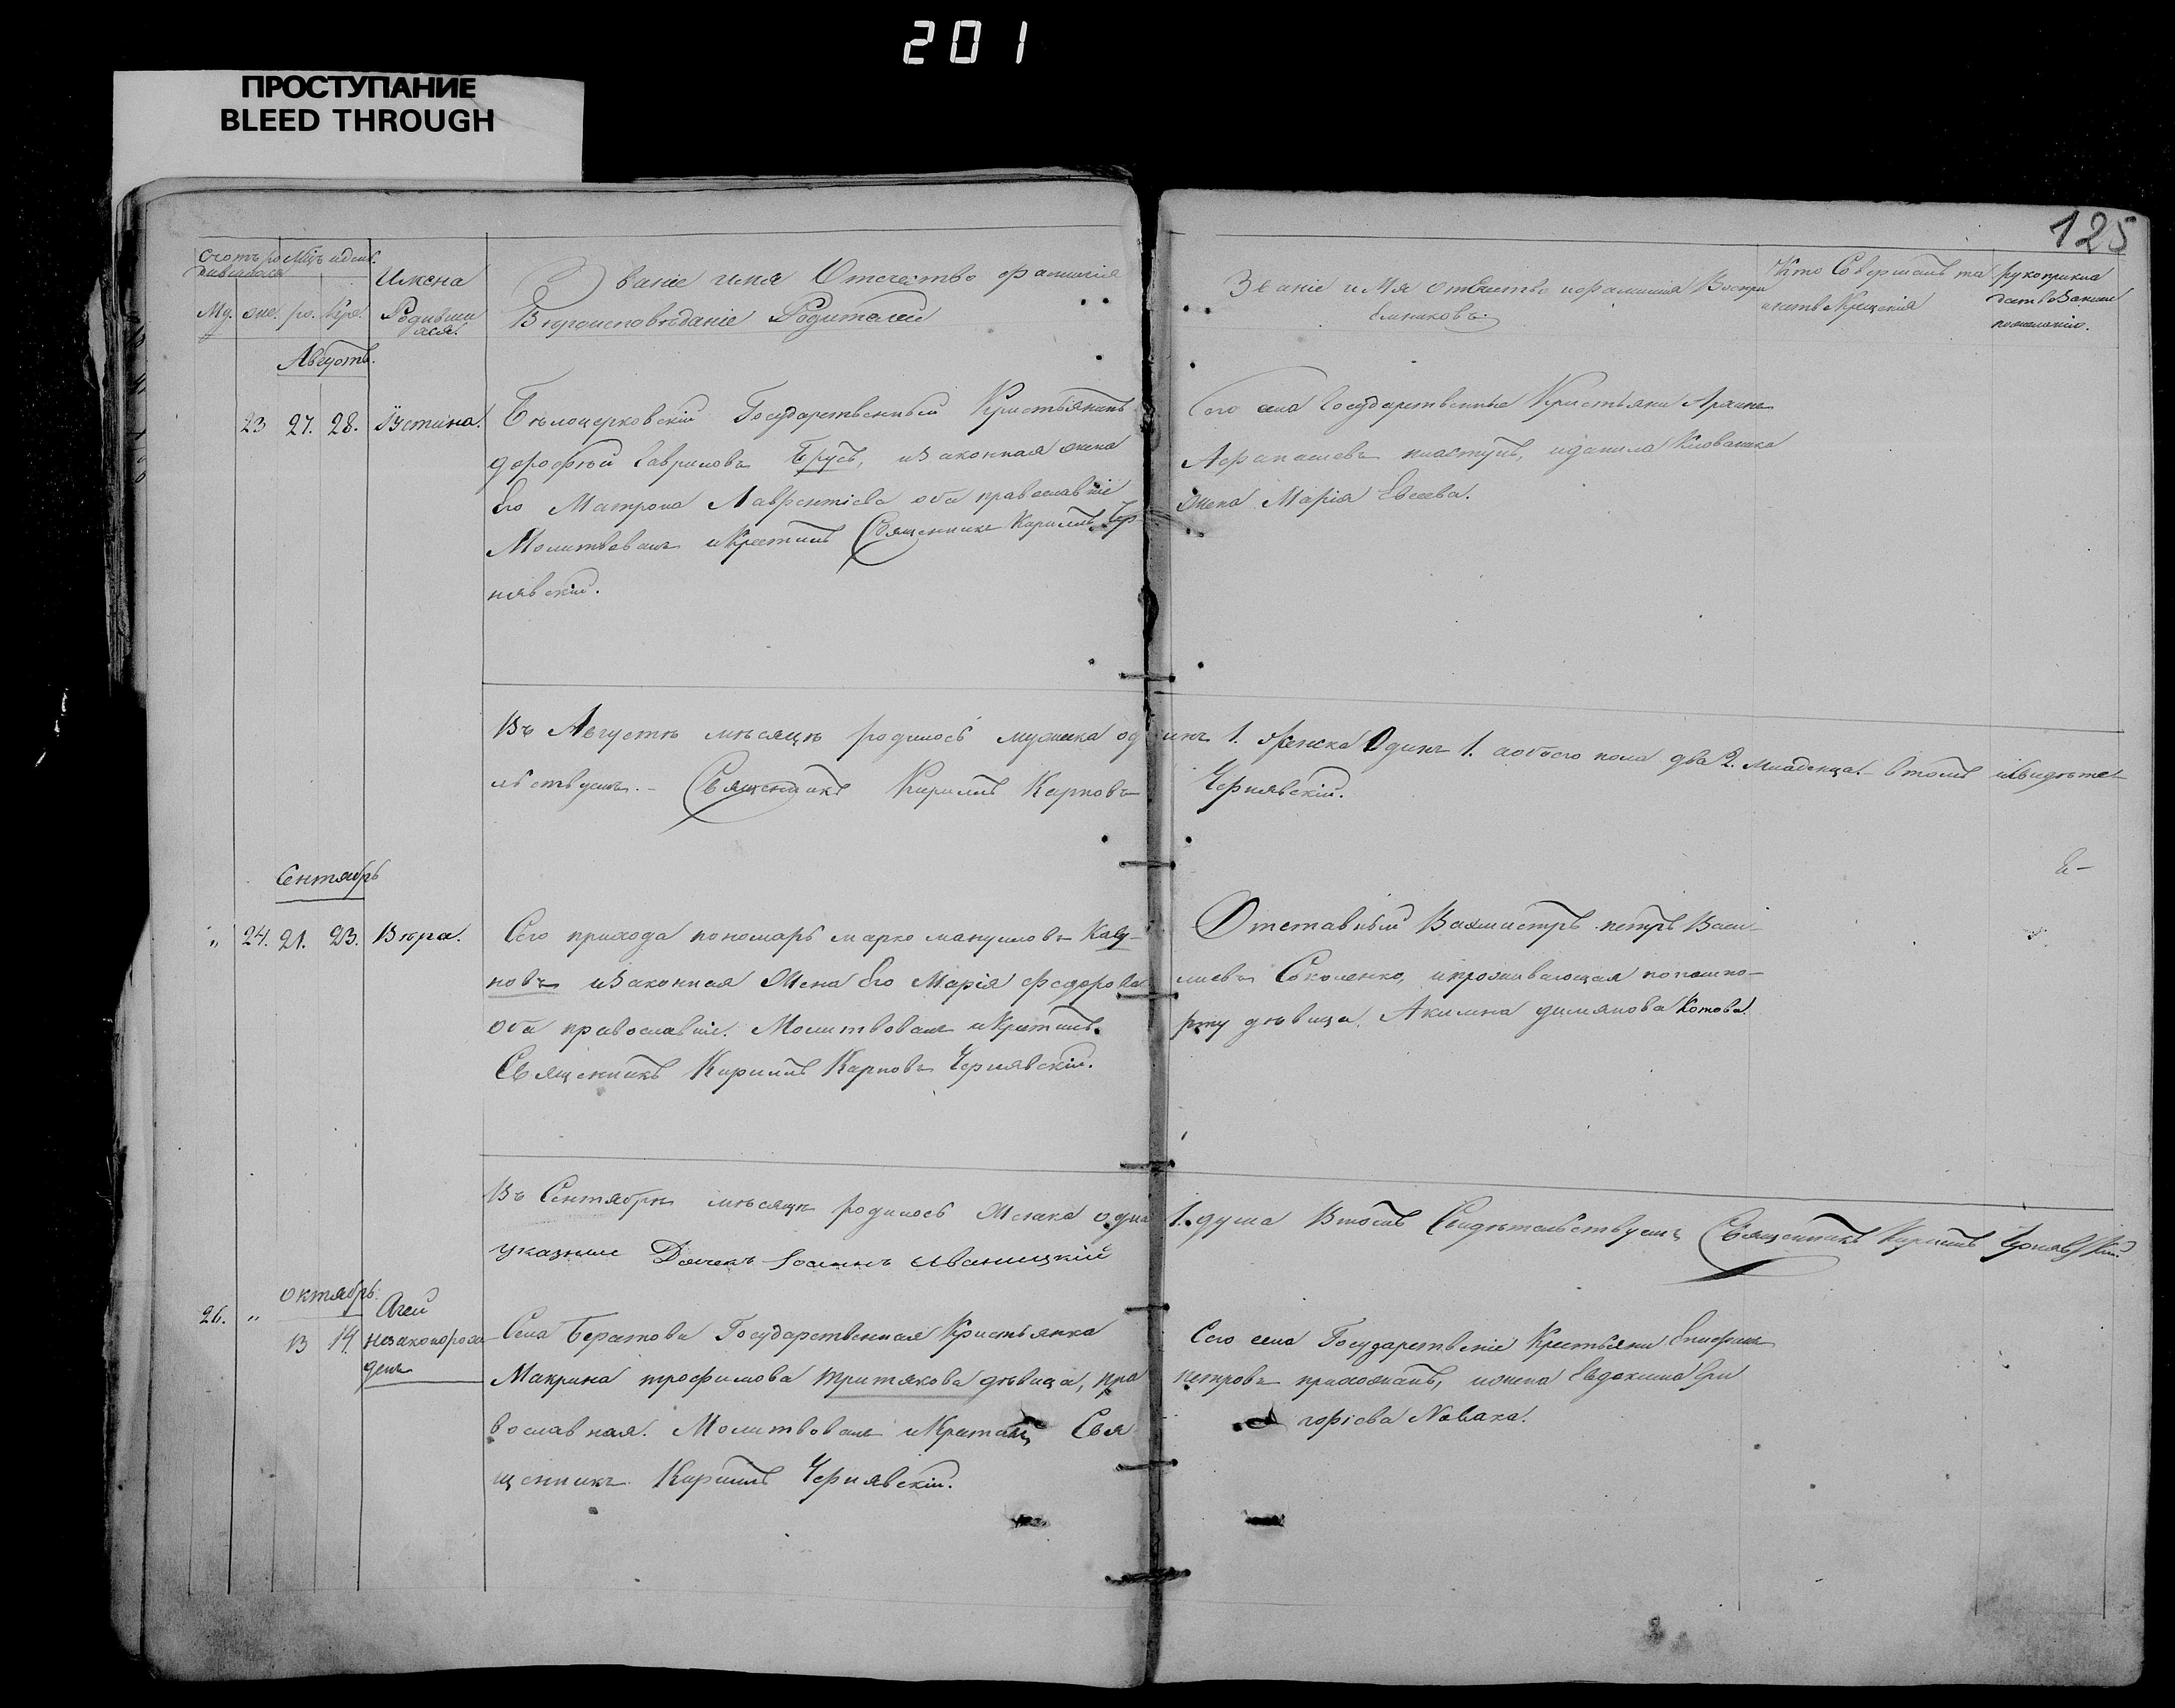 201
ПРОСТУПАНИЕ
BLEED THROUGH
125
Счотъ ро Мѣцъ идень.
Имена
Званіе имя Отечество фамилія
Званіе и Мя отечество ифамилія Воспрі
Кто Совершалъ та
рукоприкла
Му. жен. ро. кре.
Родивши
хся.
Вѣроисповѣданіе Родителей
емниковъ.
инств Крещенія
желанію.
Августъ.
23 27. 28. Іустина.
Бѣлоцерковскій Государственный Кристьянинъ
дорофѣй Гавриловъ Брусъ, изаконная жена
Его Матрона Лаврентіева оба православніе
Молитвовалъ иКрестилъ Священникъ Кирилъ Чер
нявскій.
Сего села Государственные Кристьяни
Афанасіевъ пластунъ, иданила
жена Марія Евсеева.
Въ Августѣ мѣсяцѣ родилось мужеска одинъ 1. женска Одинъ 1. аобоего пола два 2. младенца. Втомъ исвидѣте
льствуемъ. - Священникъ Кирилъ Карповъ Чернявскій.
Сентябрь
„ 24. 21. 23. Вѣра.
Сего прихода пономарь марко мануиловъ Каву-
новъ изаконная Жена Его Марія федорова
оба православніе. Молитвовалъ иКрестилъ.
Священникъ Кирилъ Карповъ Чернявскій.
Отставный Вахмистръ петръ Васи-
лиевъ Соколенко, ипроживающая попашпо-
рту дѣвица, Акилина димянова Котова.
Въ Сентябрѣ мѣсяцѣ родилось Женска одна 1. душа Втомъ Свидѣтельствуемъ Священникъ Кирилъ Чернявскій.
указние Дячекъ Іоаннъ Иваницкій
октябрь.
26. „ 13 14. Агей
незаконорож
денъ
Села Бератови Государственная Кристьянка
Макрина трофимова Тритякова дѣвица, пра
вославная. Молитвовалъ иКрестилъ Свя
щенникъ Кирилъ Чернявскій.
Сего села Государствение Крестьяни Епифанъ
петровъ прихожанъ, ижена Евдокима Гри
горіева Новака.